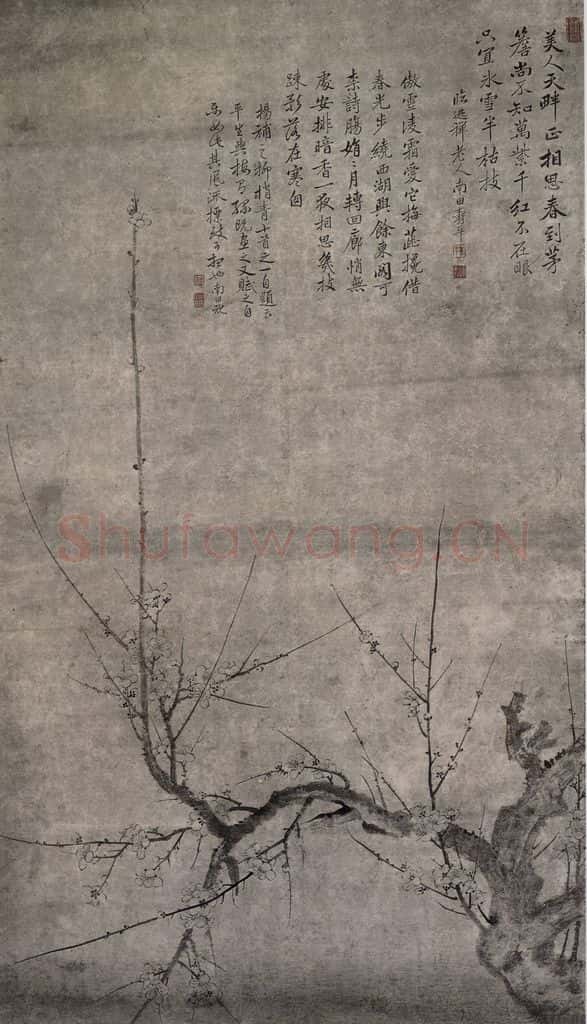 美人天畔正相思春到茅
簷尚不知萬紫千紅不在眼
只宜氷雪半枯枝
臨逃禪老人南田壽平
傲雪凌霜愛它梅 攪借
春光步繞西湖興餘東閣可
柰詩腸娟娟月轉回廊悄無
處安排暗香一夜相思幾枝
疎影落在寒囪
楊補之柳梢青十首之一自題云
平生與梅 既畫之又賦之自
其風流 南田
Shufawang.CN